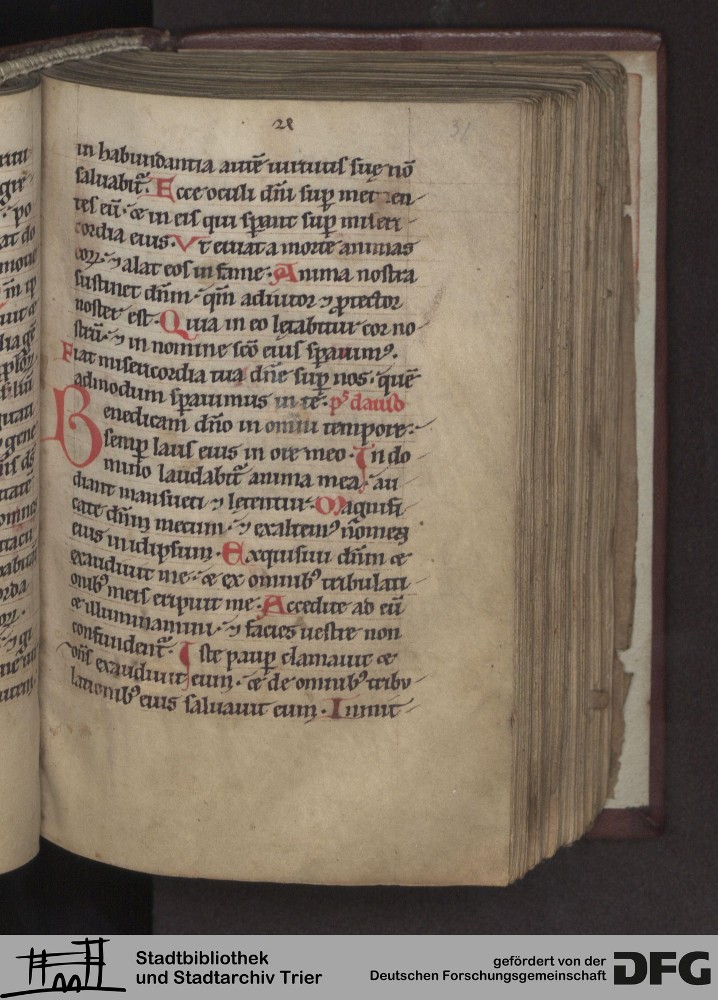 21
31
in habundantia autē uirtutis suę nō
saluabit᷑. Ecce oculi dn̄i suꝑ metuen
tes eū· & in eis qui sꝑant suꝑ miseri
cordia eius. Vt eruat a morte animas
eoꝝ· ⁊ alat eos in fame. Anima nostra
sustinet dn̄m· qm̄ adiutor ⁊ ꝓtector
noster est. Quia in eo lętabitur cor no
strū· ⁊ in nomine scō eius sꝑauim᷒.
Fiat misericordia tua dn̄e suꝑ nos· quē
admodum sꝑauimus in te. pˢ dauid
Benedicam dn̄o in omni tempore·
semꝑ laus eius in ore meo. In do
mino laudabit᷑ anima mea· au
diant mansueti ⁊ lętentur. Magnifi
cate dn̄m mecum· ⁊ exaltem᷒ nomen
eius in idipsum. Exquisiui dn̄m &
exaudiuit me· & ex omnib᷒ tribulati
onib᷒ meis eripuit me. Accedite ad eū
& illuminamini· ⁊ facies uestre non
confundent᷑. Iste pauꝑ clamauit &
dn̄s exaudiuit eum· & de omnib᷒ tribu
lationib᷒ eius saluauit eum. Inmit
Stadtbibliothek
und Stadtarchiv Trier
gefördert von der
Deutschen Forschungsgemeinschaft
DFG